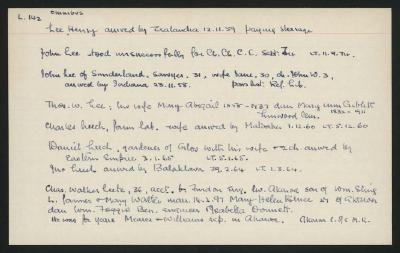 L. 142 omnibus
Lee Henry arrived by Zealandia 12.11.59 Paying steerage
John Lee stood unsuccessfully for Ch. Ch. C. C. Sept. 74 LT. 11.9.74.
John Lee of Sunderland, Sawyer, 31, wife Jane, 30, ch. John W. 3,
arrived by Indiana 23.11.58. pass. list. Ref. Lib.
Thos. W. Lee; his wife Mary Abigail 1858-1937 dau Mary Ann Giblett
Linwood Cem. 1832-911
Charles Leech, farm lab. wife arrived by Matoaka 1.12.60 LT. 5.12.60
Daniel Leech, gardener of Glos with his wife + 2ch. arrived by
Eastern Empire 3.1.65 LT. 5.1.65.
Jno Leech arrived by Balaklava 29.2.64 LT. 1.3.64.
Chas. Walker Leete, 36, acct. by London Eng. Akaroa son of Wm.
L. farmer + Mary Walker mar. 14.2.97 Mary Helen Bruce 27 of Akaroa
dau Wm. Bruce engineer Isabella
He was for years rep. in Akaroa. Akaroa